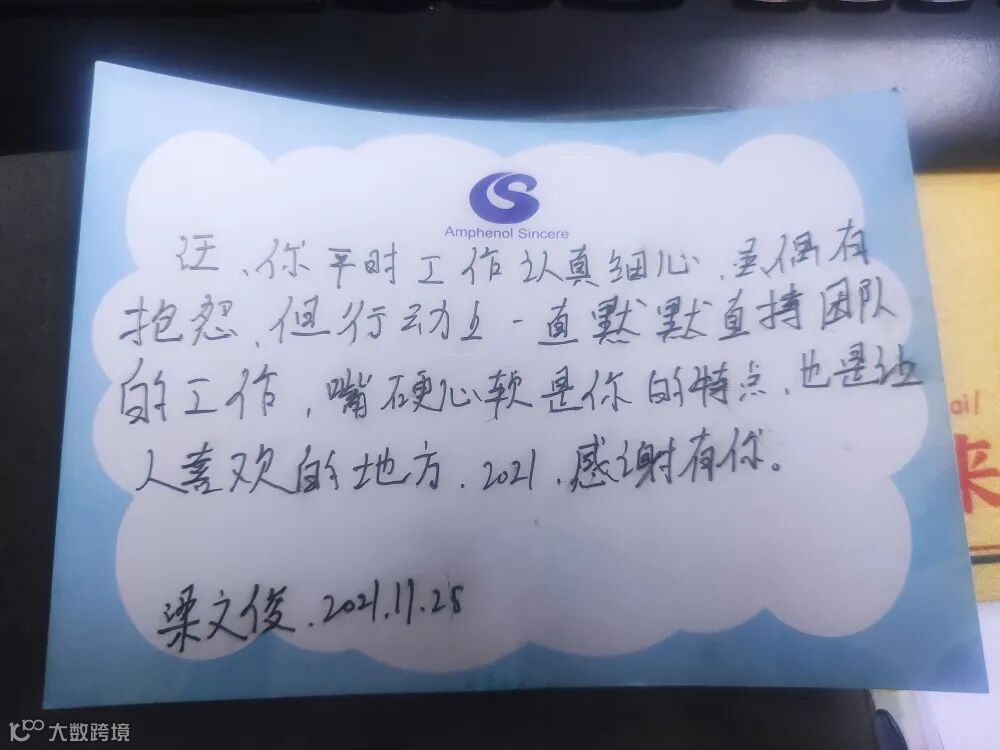 Amphenol Sincere
汪、你平时工作认真细心,虽偶有
抱怨,但行动上一直默默直持团队
的工作,嘴硬心软是你的特点,也是让
人喜欢的地方.2021,感谢有你。
梁文俊.2021.11.28
ail
来
大数跨境